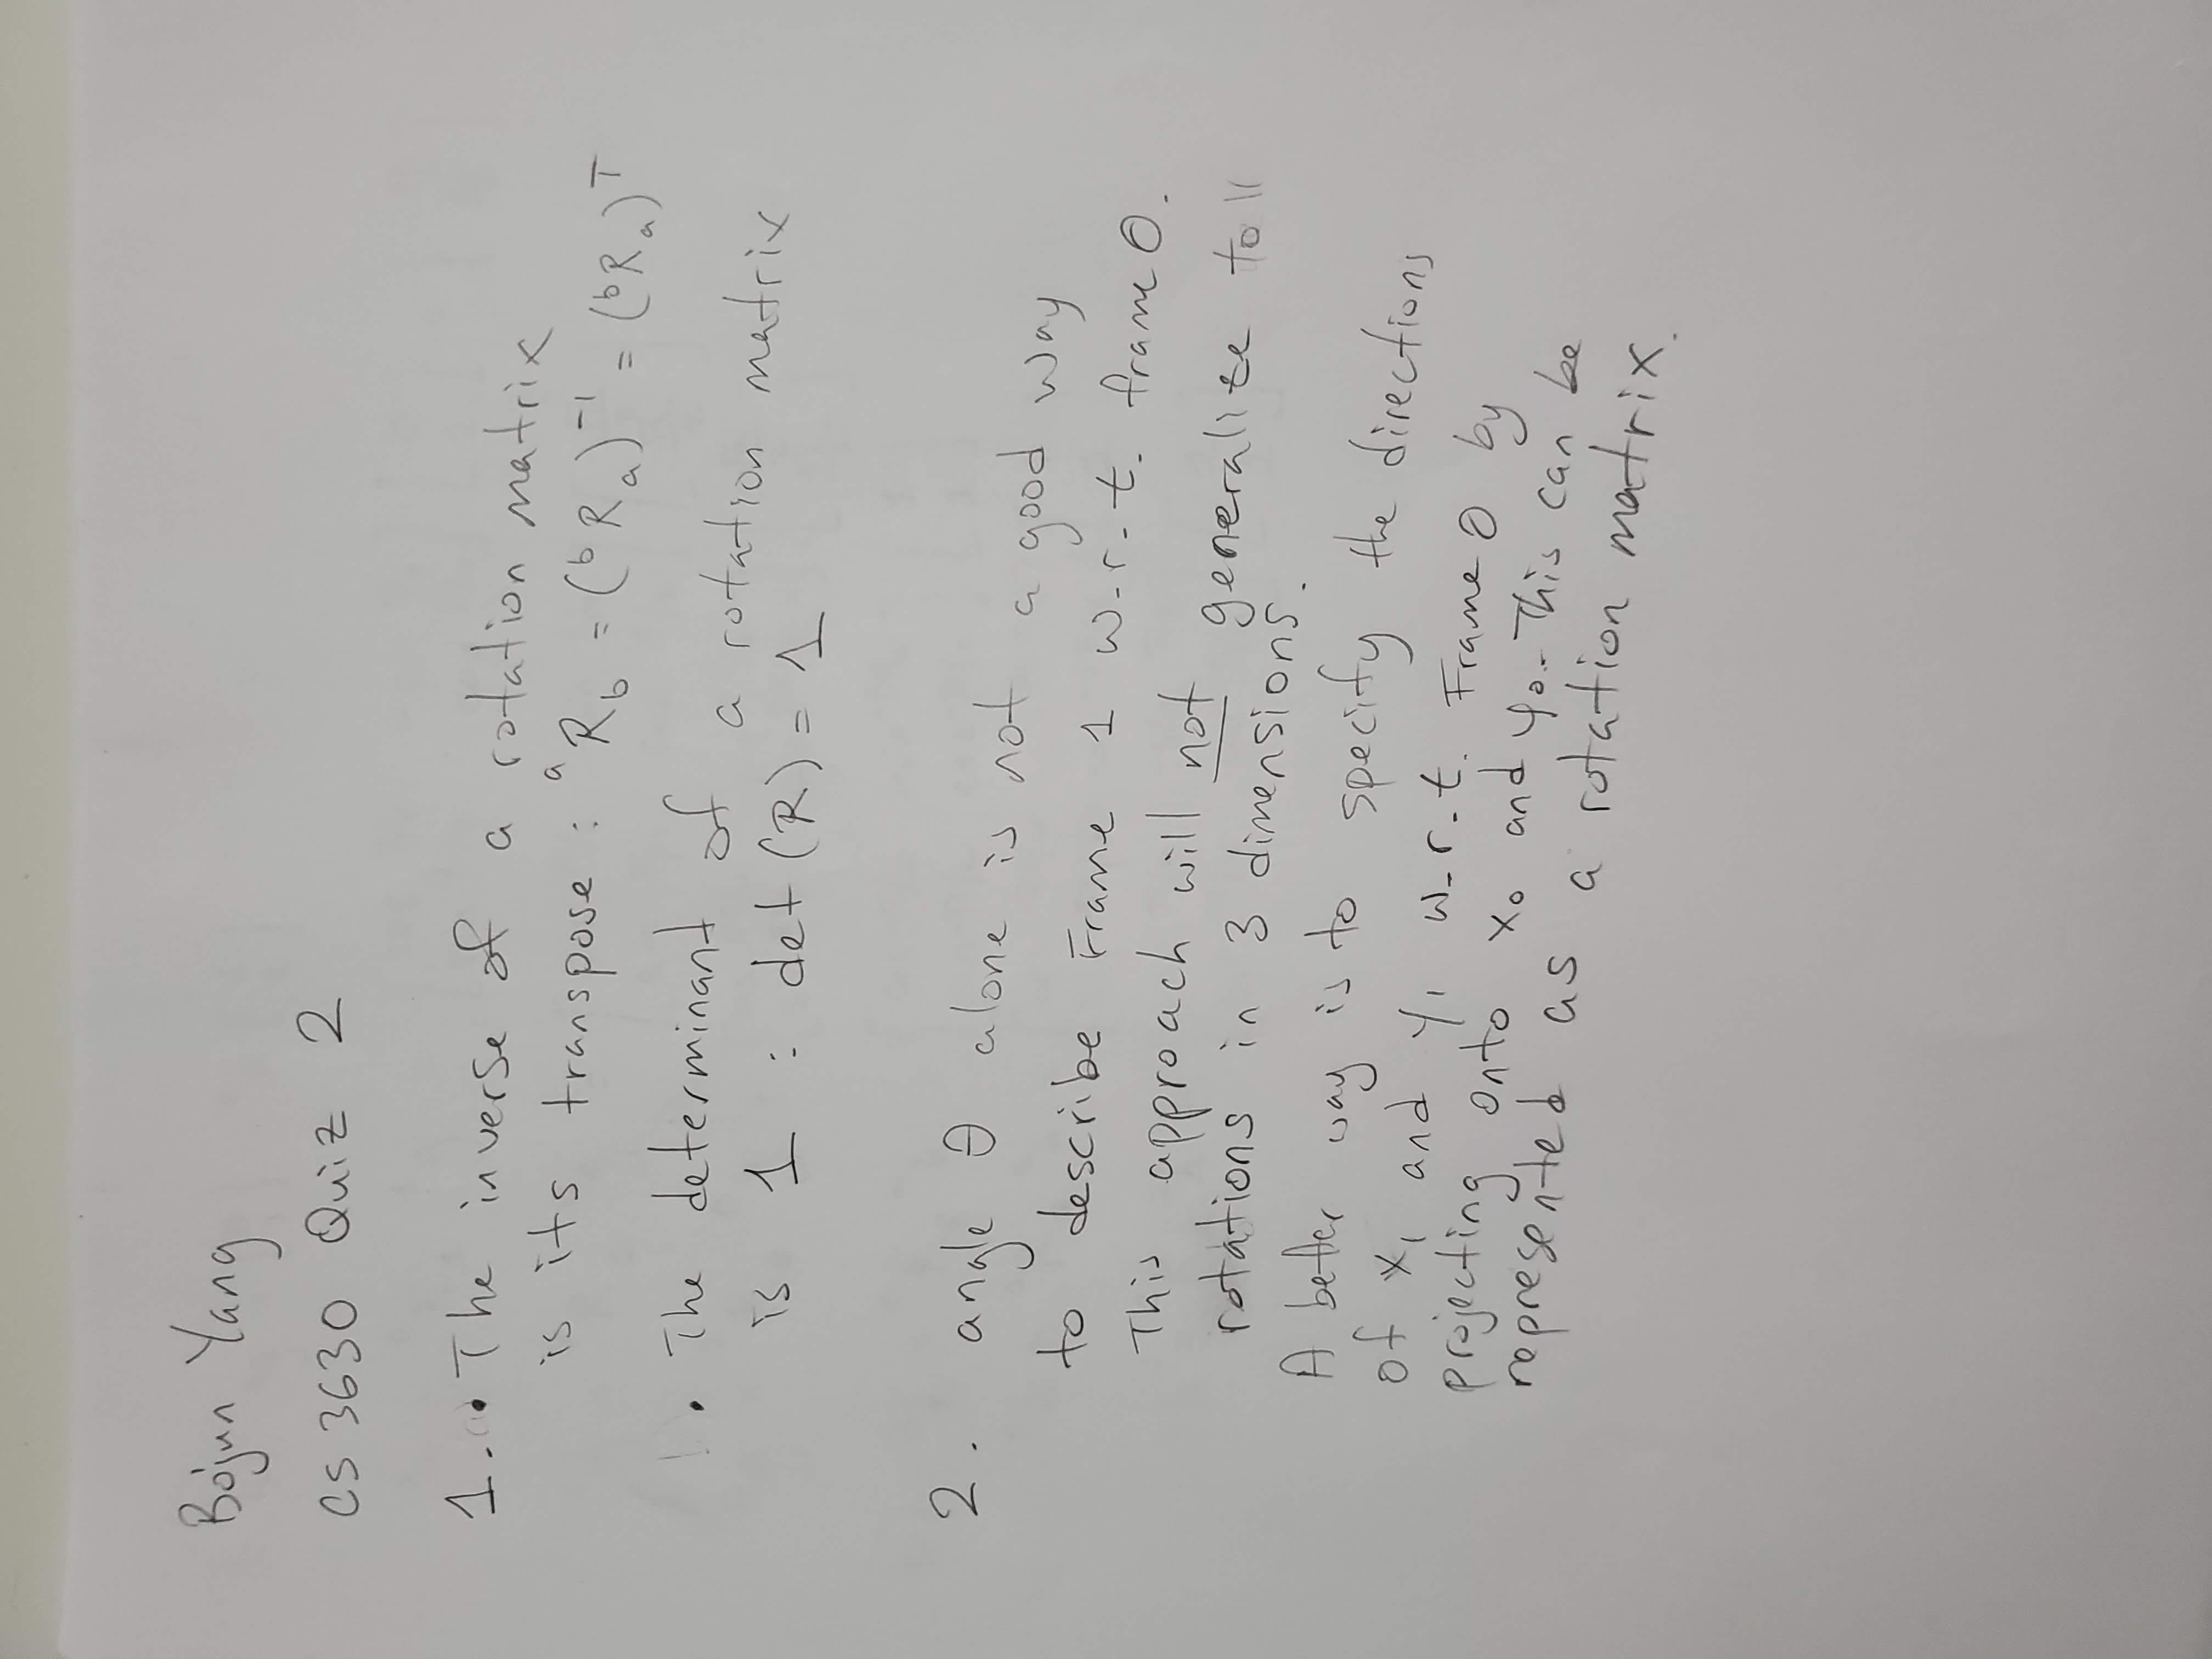 Bojun Yang
CS 3630 Quiz 2
1. • The inverse of a rotation matrix
is its transpose : ᵃR_b = (ᵇR_a)⁻¹ = (ᵇR_a)ᵀ
• The determinant of a rotation matrix
is 1 : det (R) = 1
2. angle θ alone is not a good way
to describe Frame 1 w.r.t. frame 0.
This approach will not generalize to
rotations in 3 dimensions.
A better way is to specify the directions
of x₁ and y₁ w.r.t. Frame 0 by
projecting onto x₀ and y₀. This can be
represented as a rotation matrix.